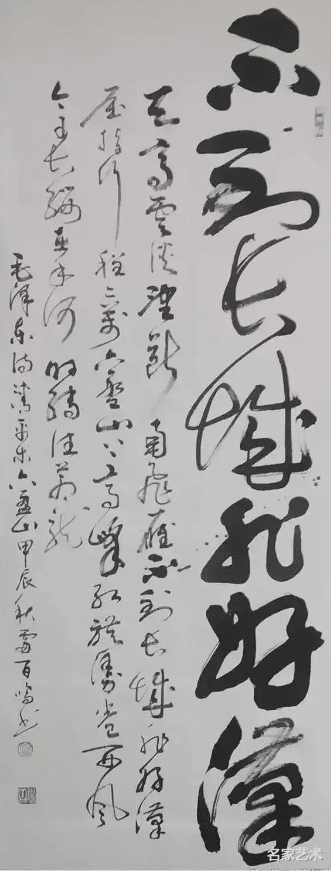 不到长城非好漢
天高雲淡望断南飛雁不到长城非好漢
屈指行程二萬六盘山上高峰红旗漫卷西风
今日长缨在手何时缚住苍龙
毛泽东词清平乐六盘山甲辰秋雷百鸣书
名家艺术